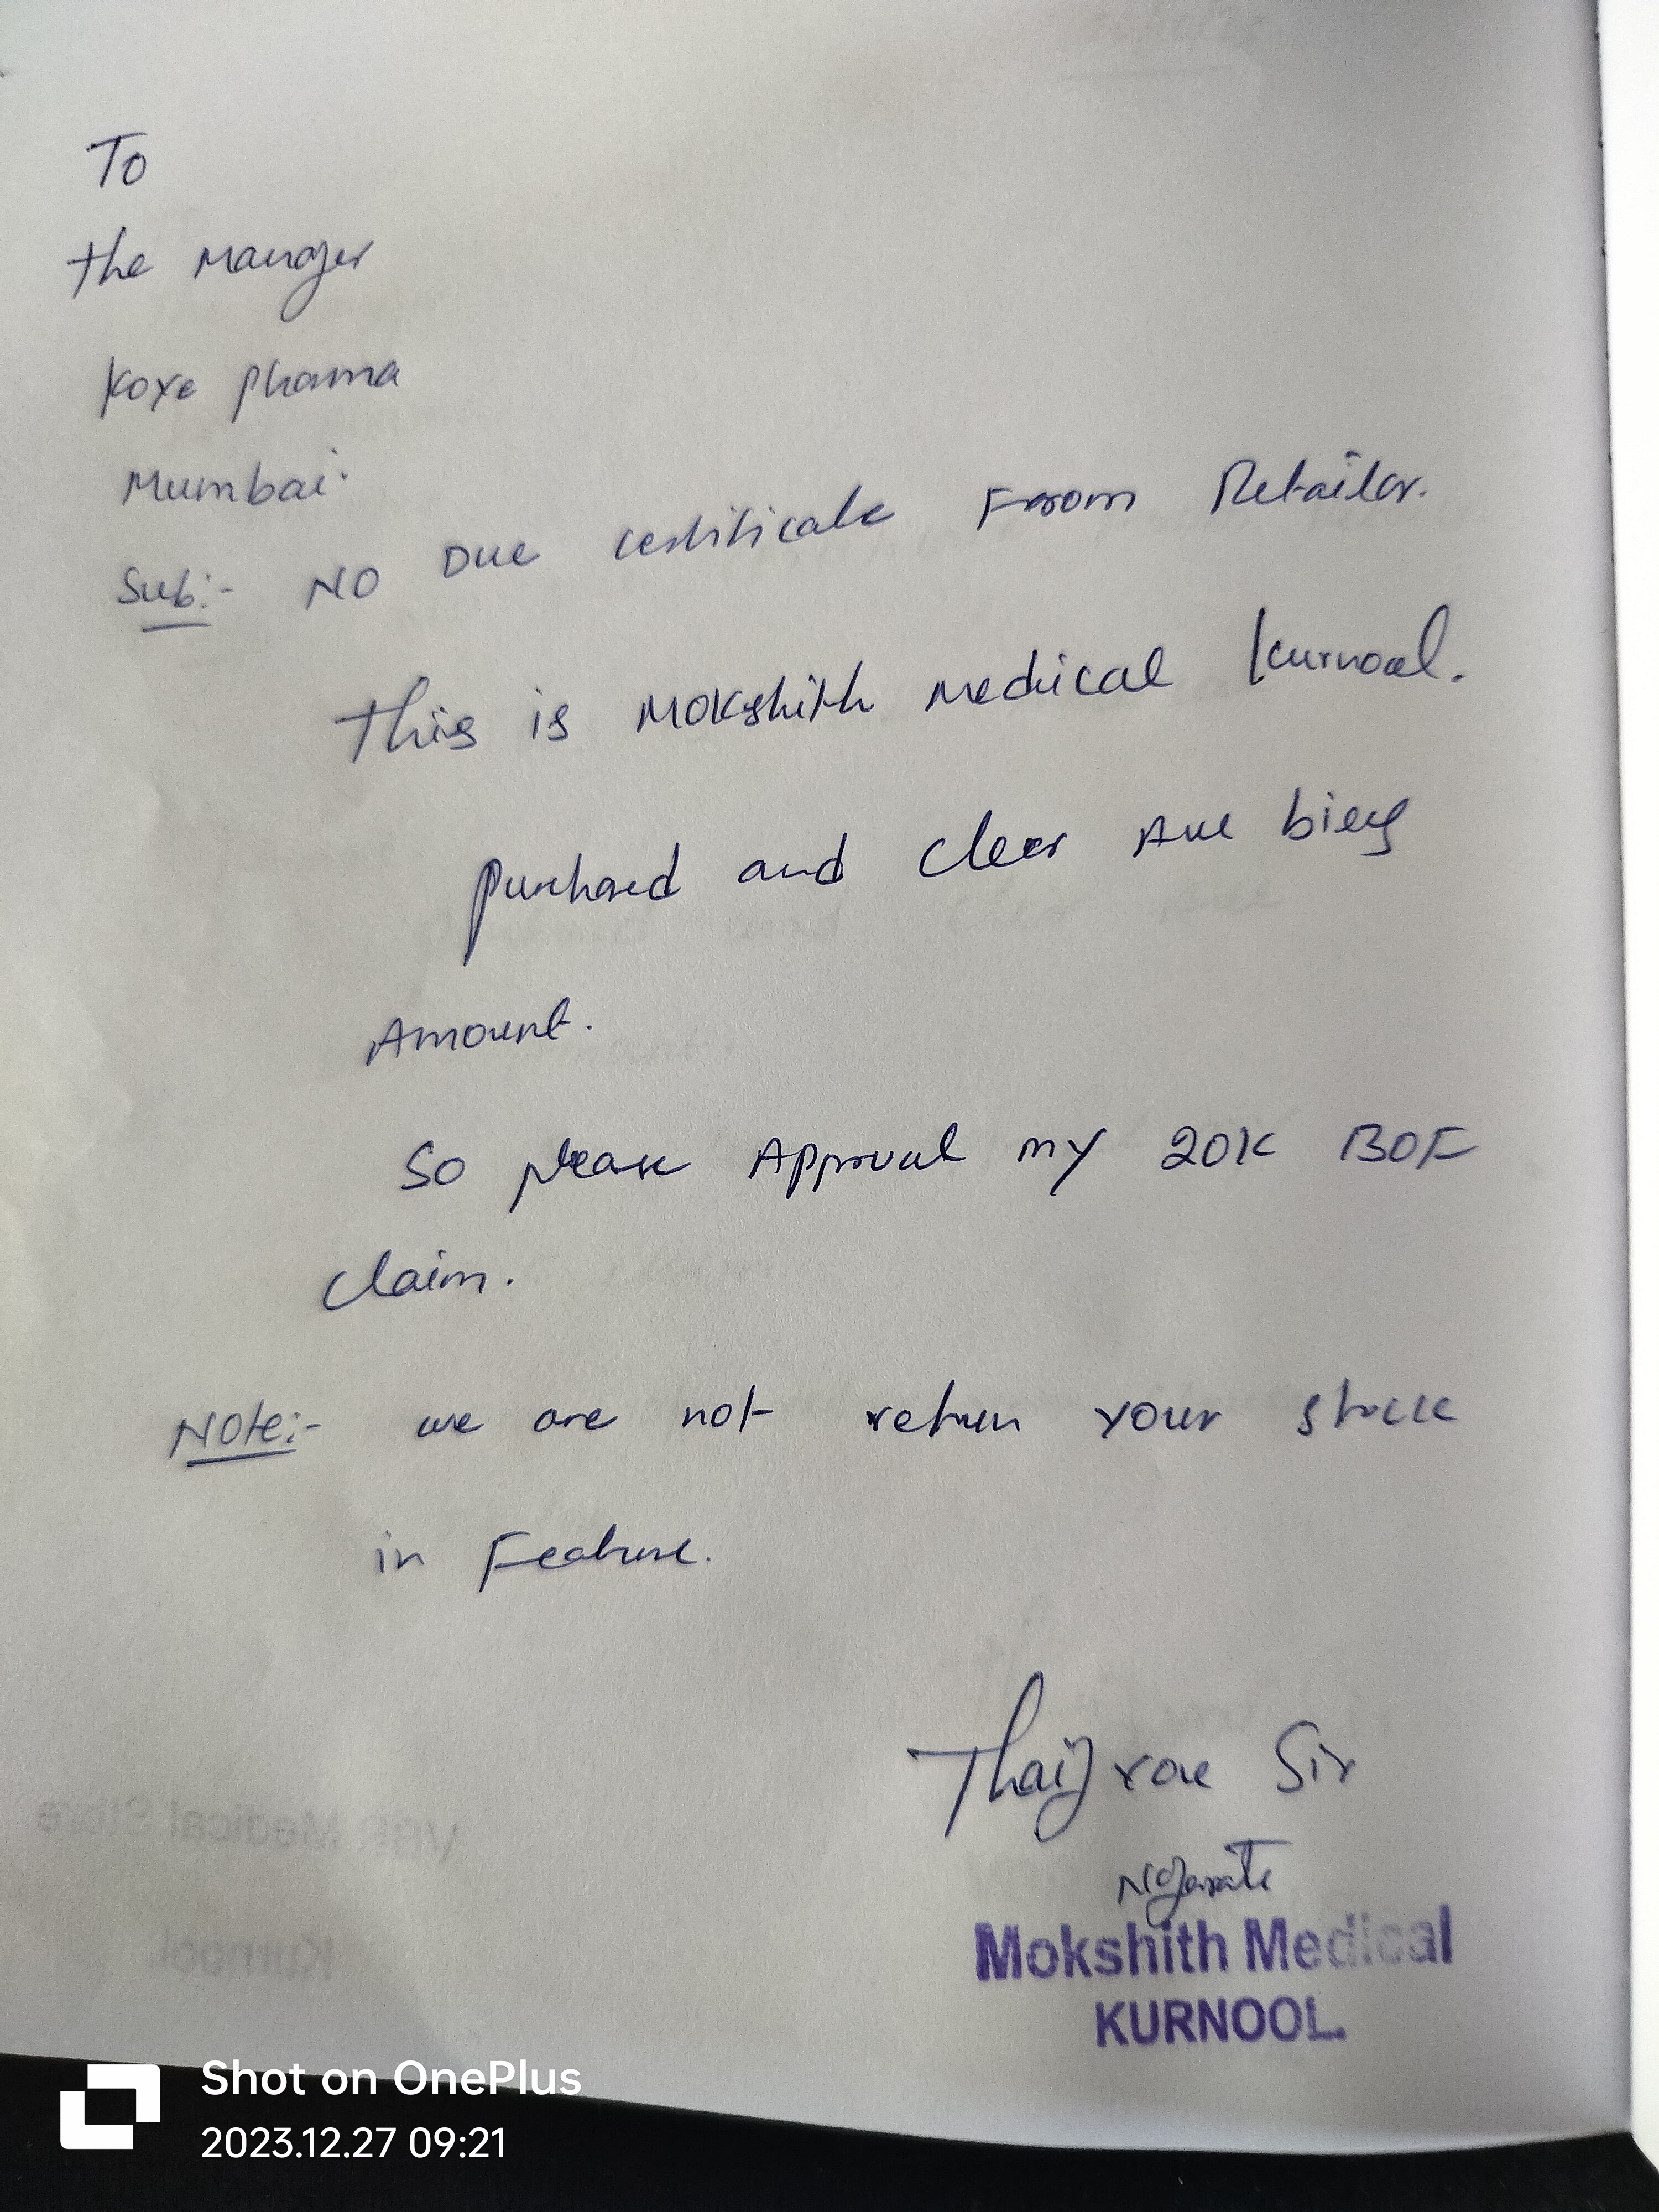 To
the Manger
Koxe phama
Mumbai.
Sub:- NO Due certificate From Retailer.
This is Mokshith Medical Kurnool.
purchased and clear Are
Amount.
So please Approval my 20K BOF
claim.
Note:- we are not return your stock
in Feature.
Sir
Mokshith Medical
KURNOOL.
Medical Store
Kurnool
Shot on OnePlus
2023.12.27 09:21